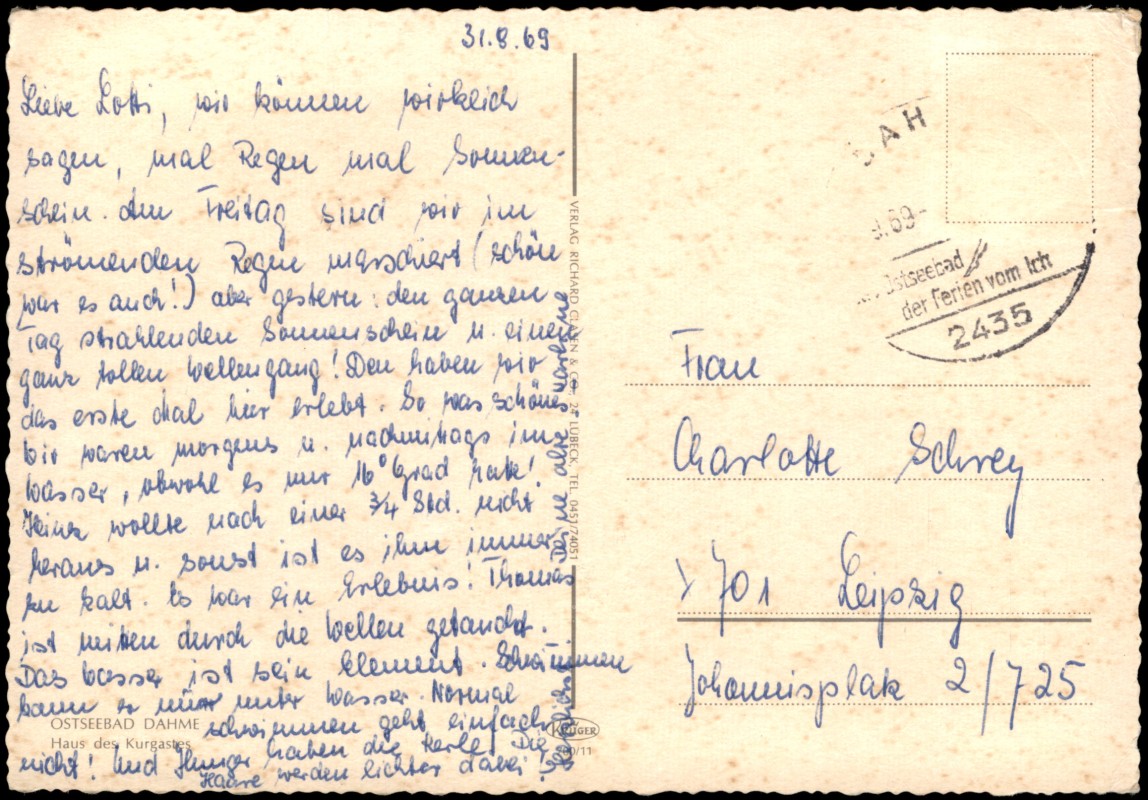 31.8.69
Liebe Lotti, wir können wirklich
sagen, mal Regen mal Sonnen-
schein. Am Freitag sind wir im
strömenden Regen marschiert (schön
war es auch!) aber gestern: den ganzen
Tag strahlenden Sonnenschein u. einen
ganz tollen Wellengang! Den haben wir
das erste Mal hier erlebt. So was schönes
Wir waren morgens u. nachmittags im
Wasser, obwohl es nur 16° Grad hatte!
Heinz wollte nach einer 3/4 Std. nicht
heraus u. sonst ist es ihm immer
zu kalt. Es war ein Erlebnis! Thomas
ist mitten durch die Wellen getaucht.
Das Wasser ist sein Element. Schwimmen
kann er nur unter Wasser. Normal
schwimmen geht einfach
nicht! Und Hunger haben die Kerle! Die
Haare werden lichter dabei!
Herzlichst
Deine alte
OSTSEEBAD DAHME
Haus des Kurgastes
VERLAG RICHARD CLASEN & CO., 24 LÜBECK, TEL. 0451/74051
KRÜGER
/11
DAH
.69-
Ostseebad
der Ferien vom Ich
2435
Frau
Charlotte Schrey
701 Leipzig
Johannisplatz 2/725